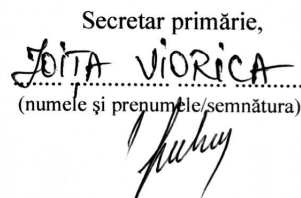 Secretar primărie,
JOIȚA VIORICA
(numele şi prenumele/semnătura)